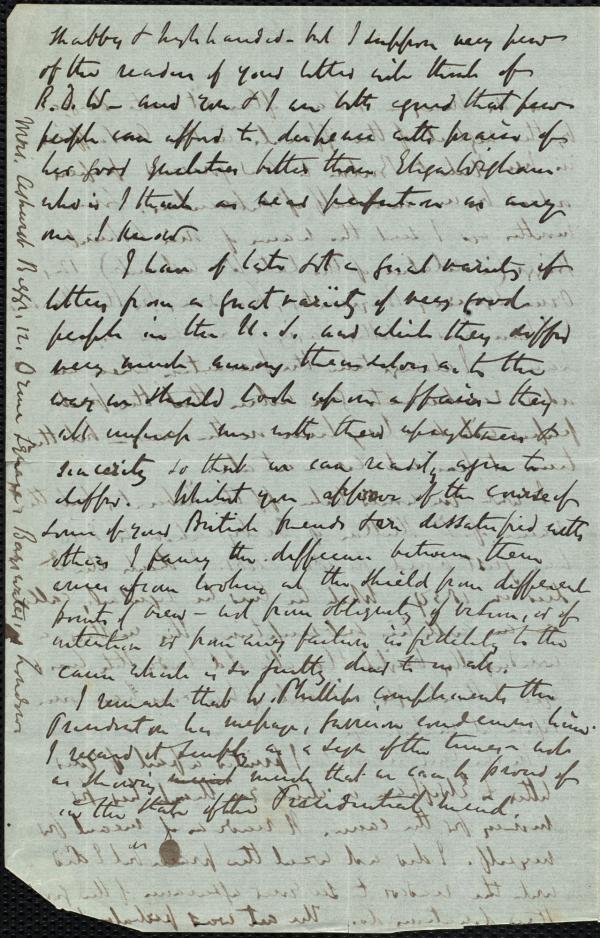 shabby & high handed - but I suppose very few
of the readers of your letter will think of
R. D. W - and you & I are both agreed that few
people can afford to dispense with praise of
her good qualities better than Eliza Wigham
who is I think as near perfection as any
one I know
I have of late got a great variety of
letters from a great variety of very good
people in the U. S. and which they differ
very much among themselves as to the
way we should look upon affairs - they
all impress me with their uprightness &
sincerity so that we can readily agree to
differ. Whilst you approve of the course of
some of your British friends & are dissatisfied with
others I fancy the difference between them
arises from looking at the shield from different
points of view - not from obliquity of vision, or of
intention or from any failure in fidelity to the
cause which is so justly dear to us all.
I remark that W. Phillips compliments the
President on his message, Garrison condemns him.
I regard it simply as a sign of the times - not
as showing much that we can be proud of
in the state of the Presidential mind
Mrs. Ashurst Biggs, 12, Orme Square Bayswater London